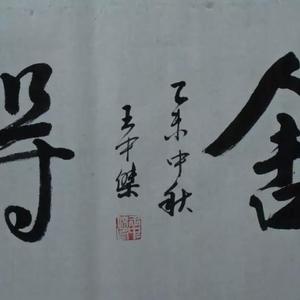 舍
乙未中秋
王中傑
得